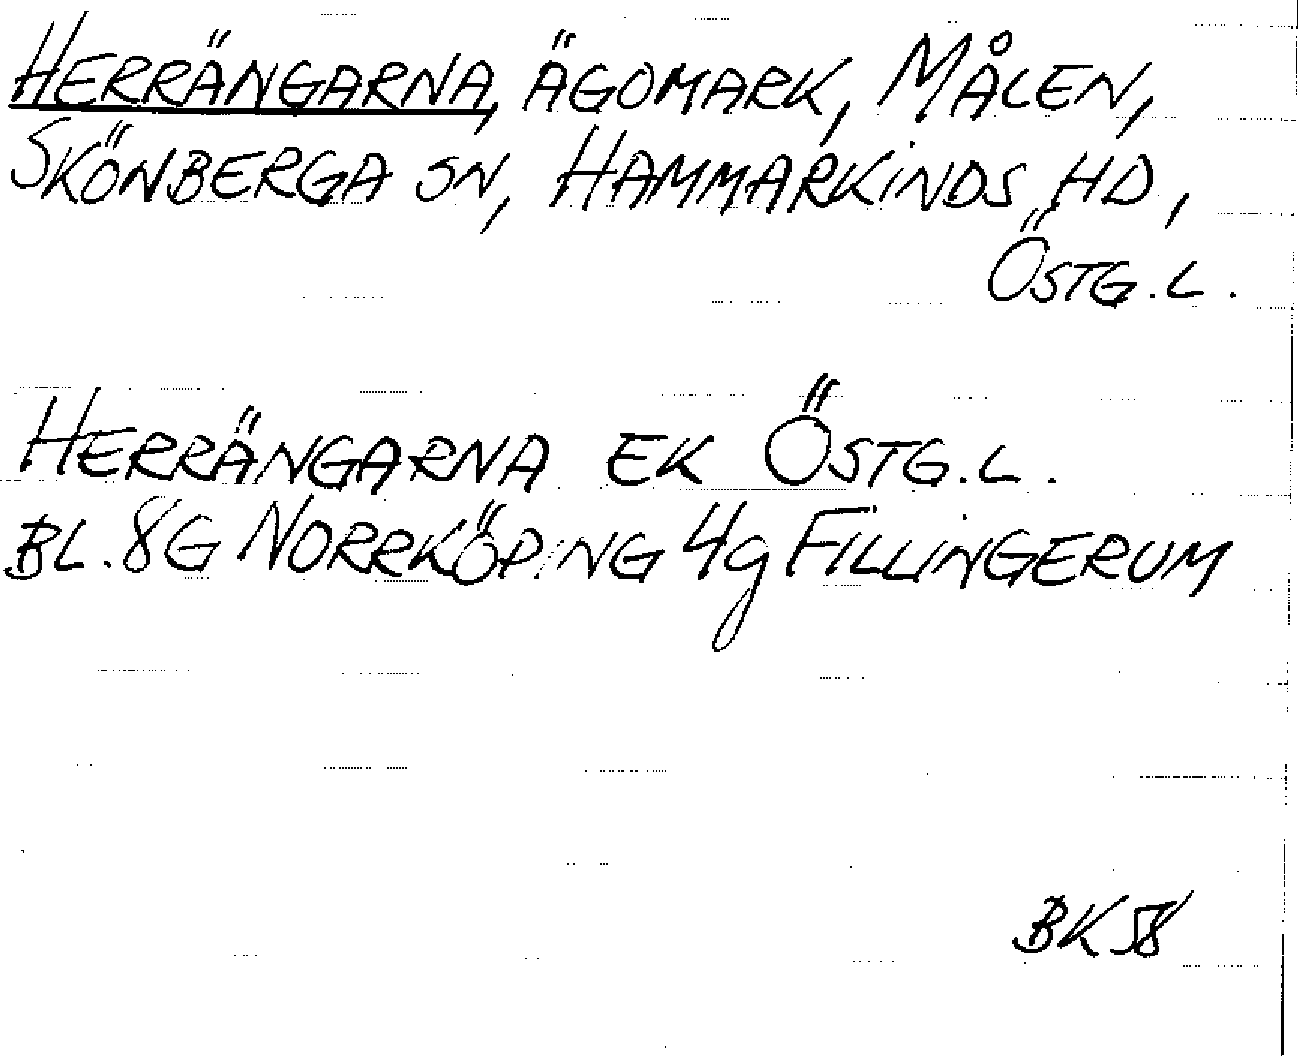 HERRÄNGARNA, ÄGOMARK, MÅLEN,
SKÖNBERGA SN, HAMMARKINDS HD,
ÖSTG.L.
HERRÄNGARNA EK ÖSTG.L.
BL. 8G NORRKÖPING 4g FILLINGERUM
BK 58